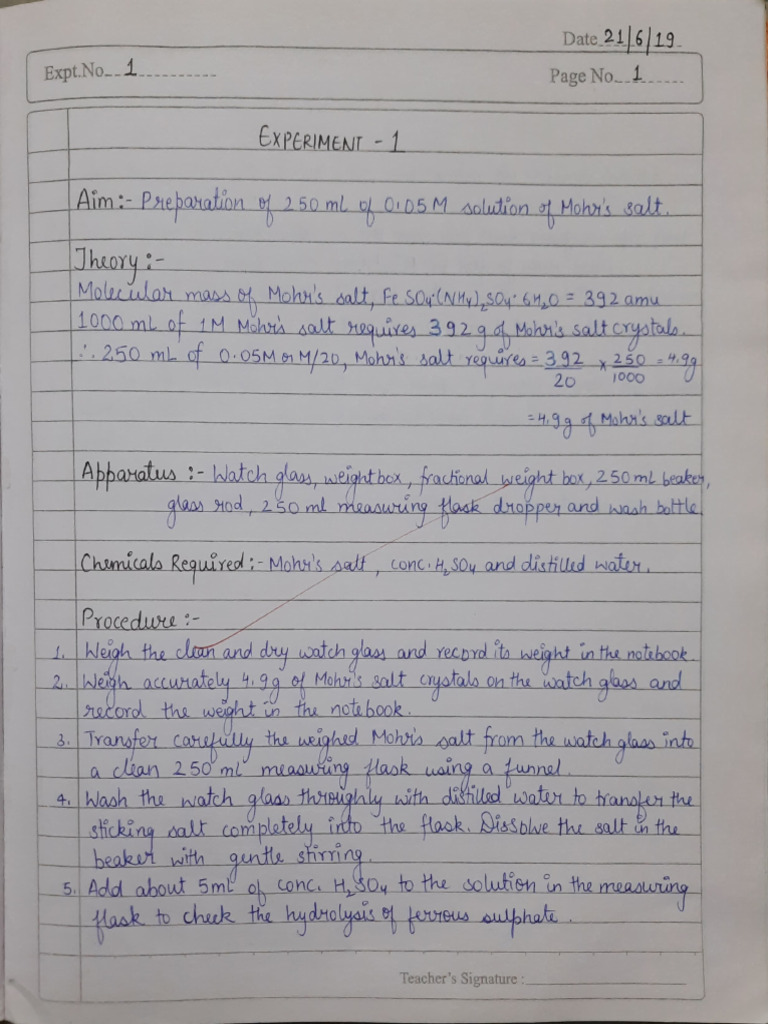 Date 21/6/19
Expt.No 1
Page No. 1
EXPERIMENT - 1
Aim:- Preparation of 250 mL of 0.05M solution of Mohr's salt.
Theory:-
Molecular mass of Mohr's salt, FeSO₄·(NH₄)₂SO₄·6H₂O = 392 amu
1000 mL of 1M Mohr's salt requires 392 g of Mohr's salt crystals.
∴ 250 mL of 0.05M or M/20, Mohr's salt requires = 392/20 × 250/1000 = 4.9g
= 4.9g of Mohr's salt
Apparatus :- Watch glass, weight box, fractional weight box, 250 ml beaker,
glass rod, 250 ml measuring flask dropper and wash bottle
Chemicals Required:- Mohr's salt, conc. H₂SO₄ and distilled water.
Procedure :-
1. Weigh the clean and dry watch glass and record its weight in the notebook.
2. Weigh accurately 4.9g of Mohr's salt crystals on the watch glass and
record the weight in the notebook.
3. Transfer carefully the weighed Mohr's salt from the watch glass into
a clean 250 mL measuring flask using a funnel.
4. Wash the watch glass throughly with distilled water to transfer the
sticking salt completely into the flask. Dissolve the salt in the
beaker with gentle stirring.
5. Add about 5mL of conc. H₂SO₄ to the solution in the measuring
flask to check the hydrolysis of ferrous sulphate.
Teacher's Signature :